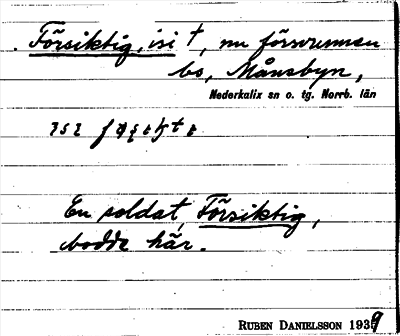 Försiktig, isi †, nu försvunnen
bo, Månsbyn,
Nederkalix sn o. tg. Norrb. län
En soldat, Försiktig,
bodde här.
RUBEN DANIELSSON 1939